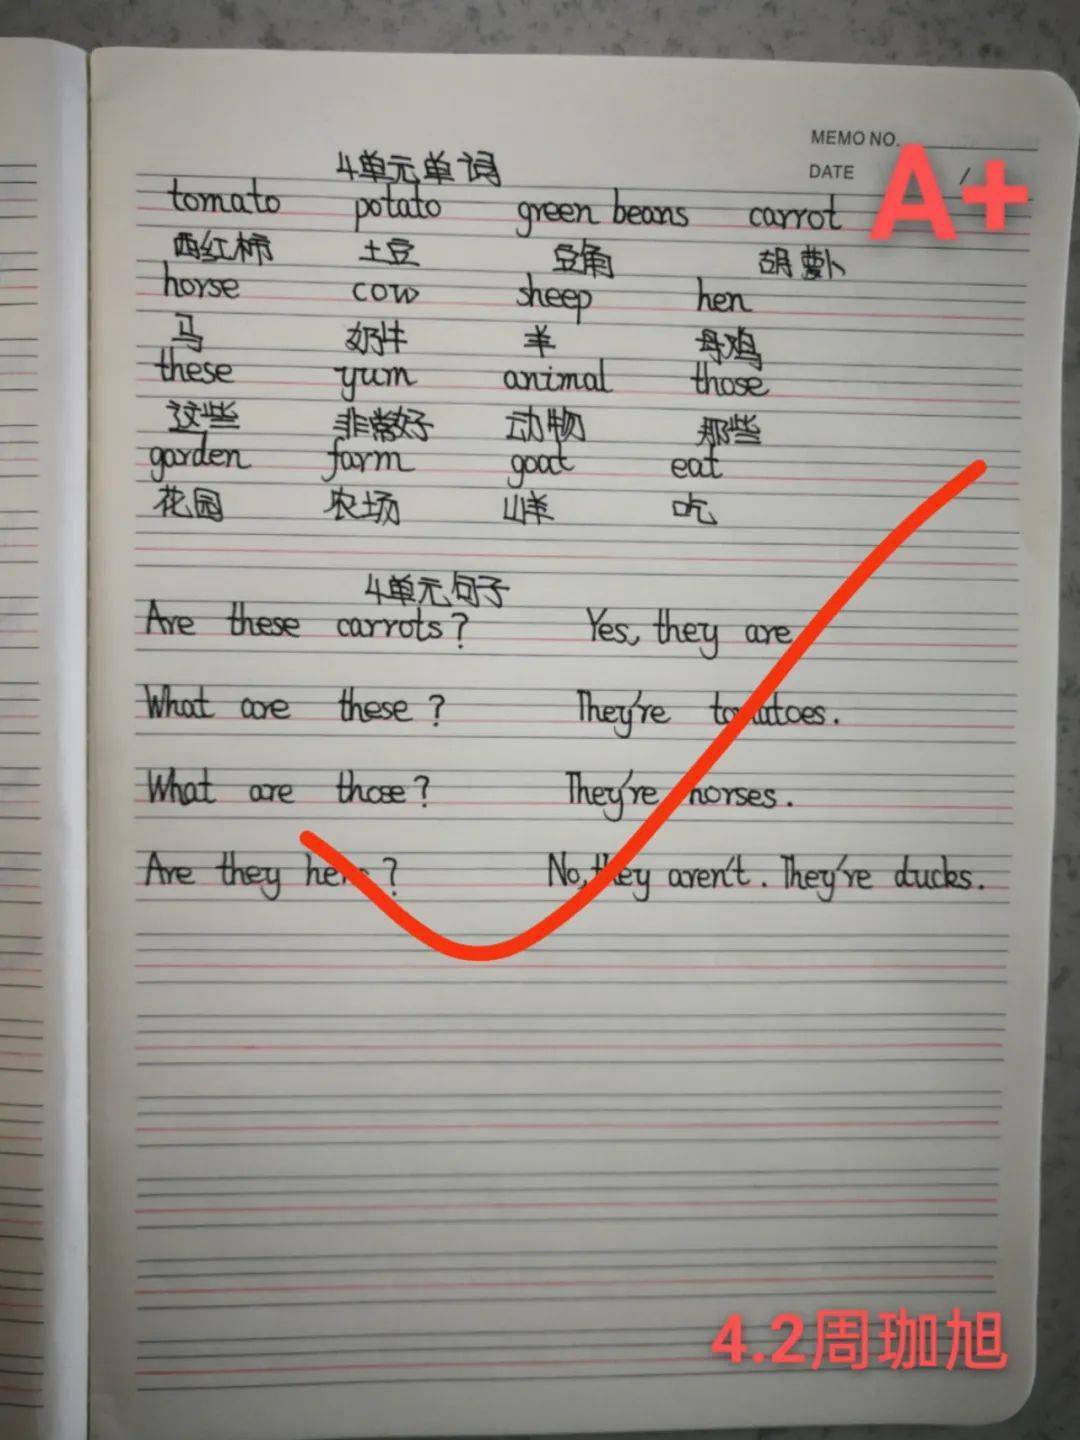 MEMO NO.
DATE /
A+
4单元单词
tomato potato green beans carrot
西红柿 土豆 豆角 胡萝卜
horse cow sheep hen
马 奶牛 羊 母鸡
these yum animal those
这些 非常好 动物 那些
garden farm goat eat
花园 农场 山羊 吃
4单元句子
Are these carrots? Yes, they are
What are these? They're tomatoes.
What are those? They're horses.
Are they hens? No, they aren't. They're ducks.
4.2周珈旭